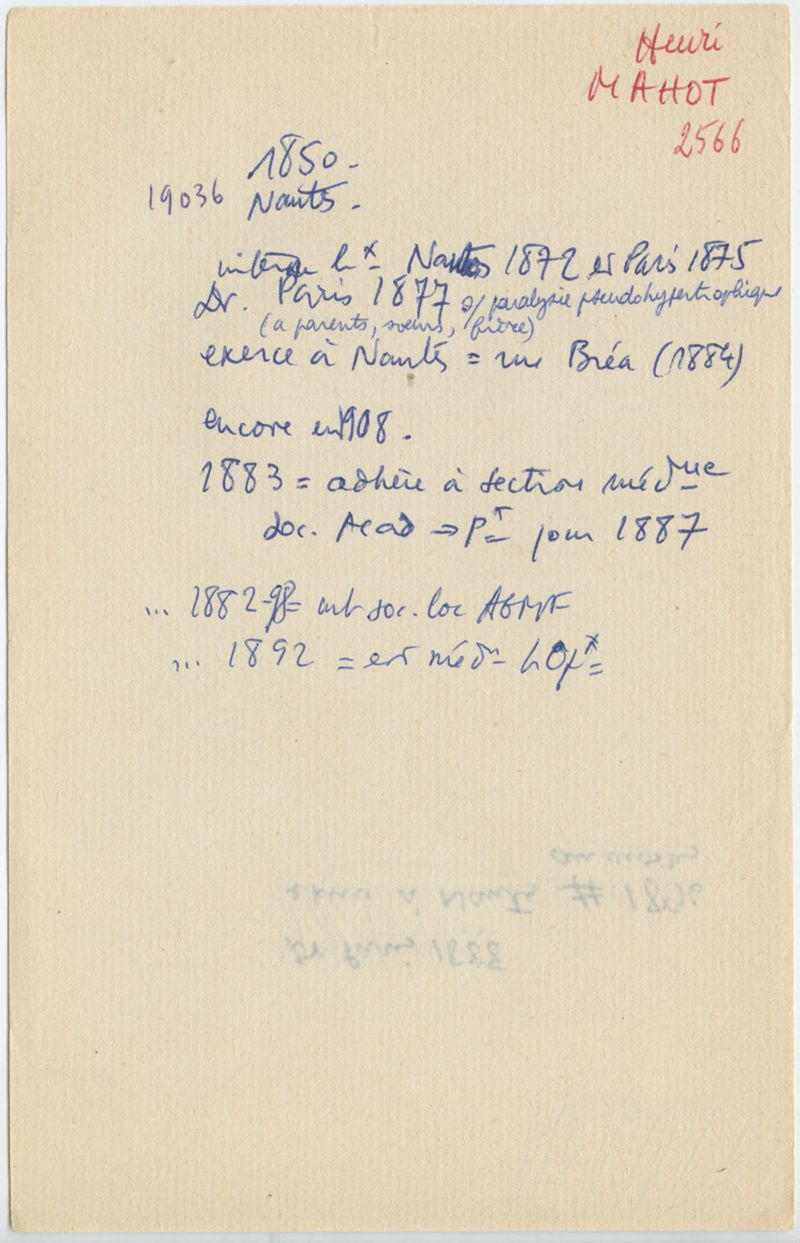 Henri
MAHOT
2566
1850 -
19036 Nantes -
interne hx Nantes 1872 et Paris 1875
Dr. Paris 1877 s/ paralysie pseudohypertrophique
(a parents, soeurs, frère)
exerce à Nantes = rue Bréa (1884)
encore en 1908.
1883 = adhère à section médcale
Soc. Acad → Pt pour 1887
... 1882-98 = mb soc. loc AGMF
... 1892 = est médn hôpx